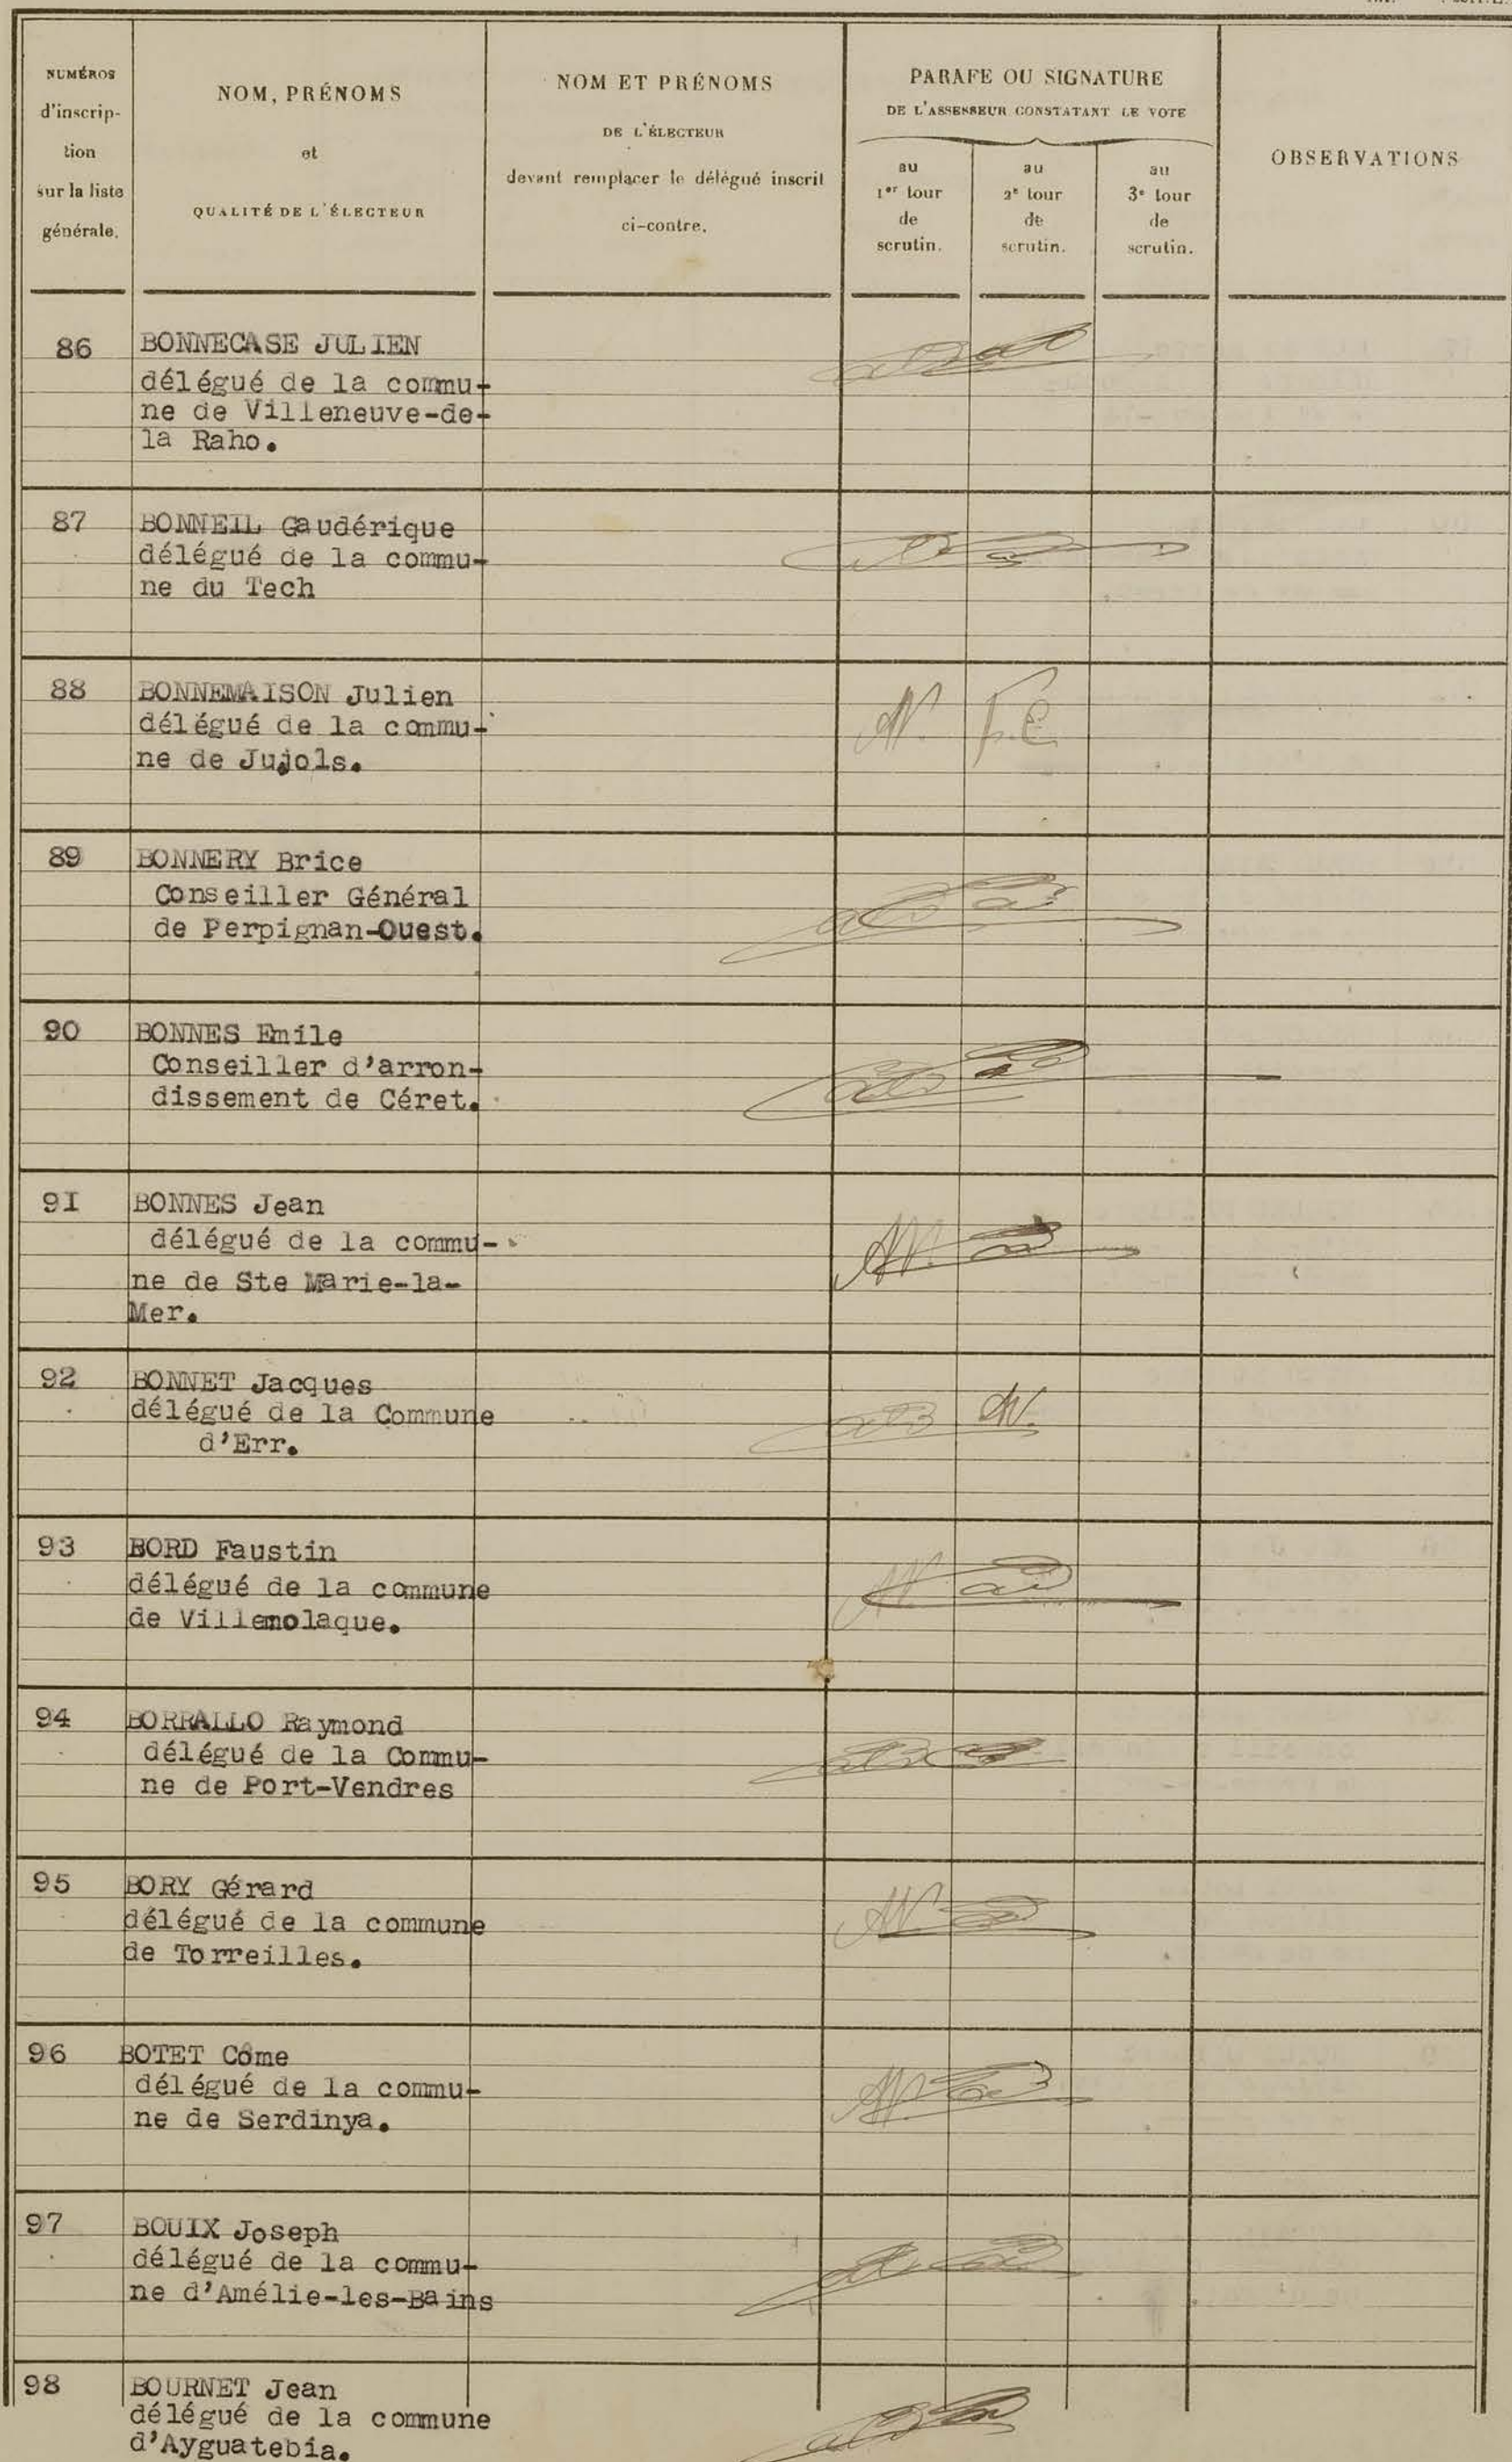 NUMÉROS
d'inscrip-
tion
sur la liste
générale.
NOM, PRÉNOMS
et
QUALITÉ DE L'ÉLECTEUR
NOM ET PRÉNOMS
DE L'ÉLECTEUR
devant remplacer le délégué inscrit
ci-contre.
PARAFE OU SIGNATURE
DE L'ASSESSEUR CONSTATANT LE VOTE
au
1er tour
de
scrutin.
au
2e tour
de
scrutin.
au
3e tour
de
scrutin.
OBSERVATIONS
86 BONNECASE JULIEN
délégué de la commu-
ne de Villeneuve-de-
la Raho.
87 BONNEIL Gaudérique
délégué de la commu-
ne du Tech
88 BONNEMAISON Julien
délégué de la commu-
ne de Jujols.
89 BONNERY Brice
Conseiller Général
de Perpignan-Ouest.
90 BONNES Emile
Conseiller d'arron-
dissement de Céret.
91 BONNES Jean
délégué de la commu-
ne de Ste Marie-la-
Mer.
92 BONNET Jacques
délégué de la Commune
d'Err.
93 BORD Faustin
délégué de la commune
de Villemolaque.
94 BORRALLO Raymond
délégué de la Commu-
ne de Port-Vendres
95 BORY Gérard
délégué de la commune
de Torreilles.
96 BOTET Côme
délégué de la commu-
ne de Serdinya.
97 BOUIX Joseph
délégué de la commu-
ne d'Amélie-les-Bains
98 BOURNET Jean
délégué de la commune
d'Ayguatebia.